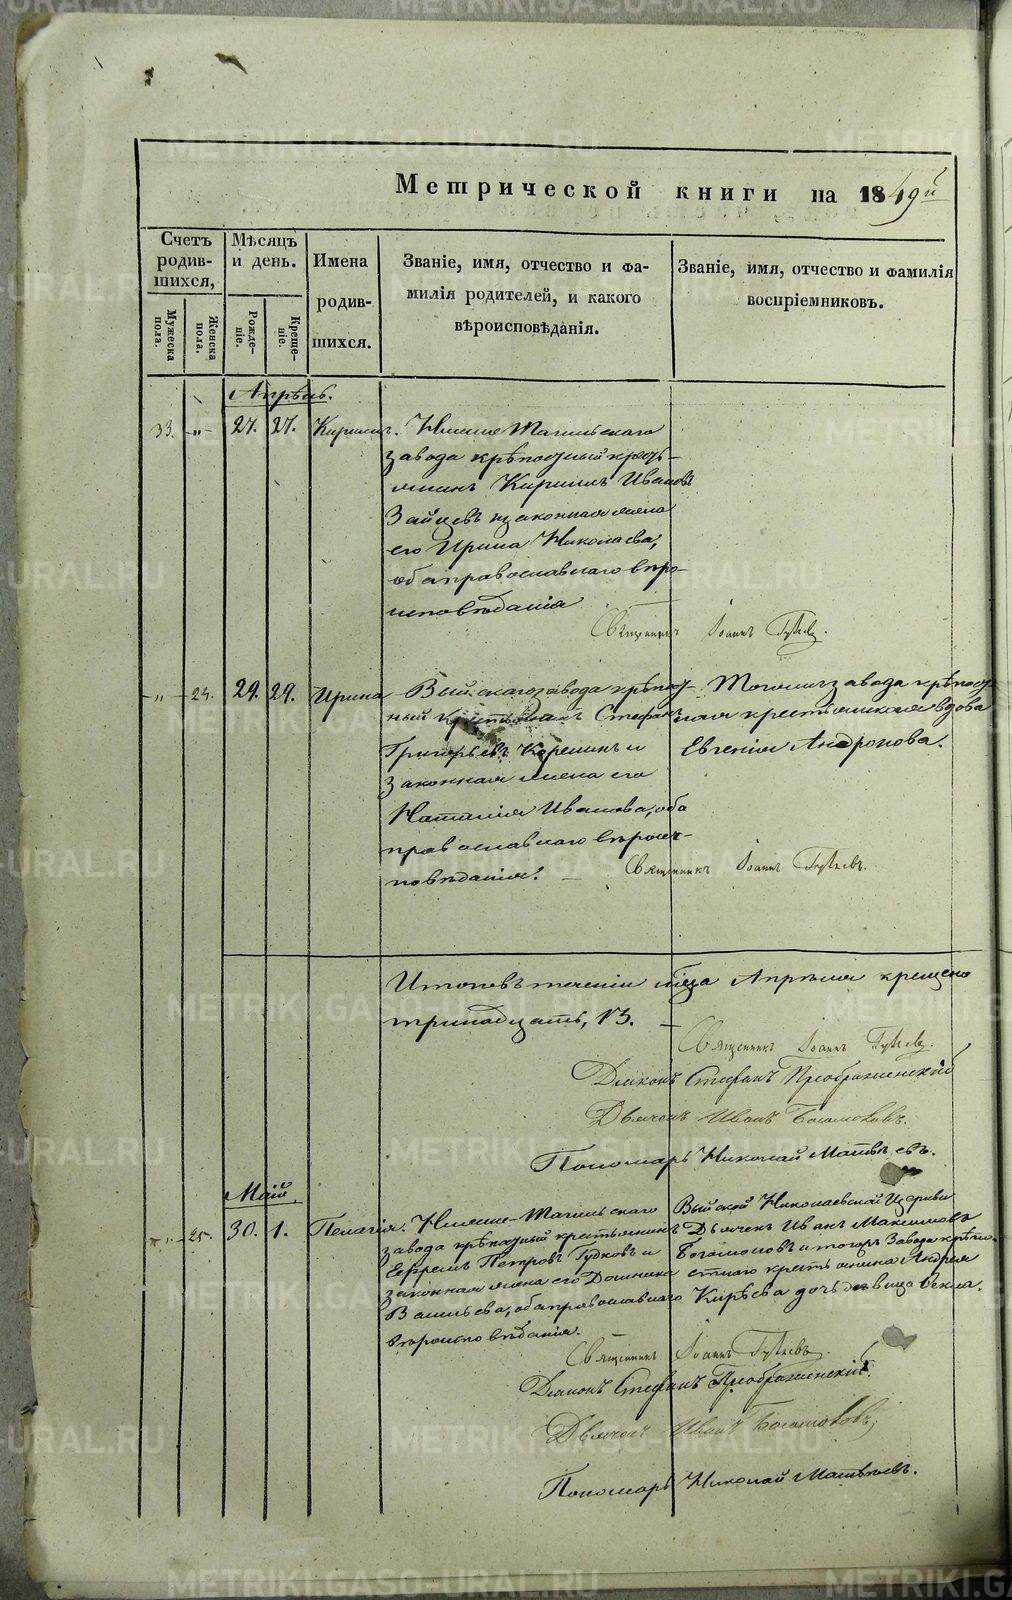 Метрической книги на 1849й
Счетъ родив-шихся,
Мѣсяцъ и день.
Имена родив-шихся.
Званіе, имя, отчество и фа-
милія родителей, и какого
вѣроисповѣданія.
Званіе, имя, отчество и фамилія
воспріемниковъ.
Мужеска пола.
Женска пола.
Рожде-ніе.
Креще-ніе.
Апрѣль.
33. -„- 27. 27. Кириллъ. Нижне Тагильскаго
завода крѣпостный кресть-
янинъ Кириллъ Ивановъ
Зайцевъ и законная жена
его Ирина Николаева,
оба православнаго вѣро-
исповѣданія
Священникъ Іоаннъ
-„- 24. 29. 29. Ирина Выйскаго завода крѣпост-
ный крестьянинъ Стефанъ
Григорьевъ и
законная жена его
Наталія Иванова, оба
православнаго вѣроис-
повѣданія.
Тогожъ завода крѣпост-
ная крестьянская вдова
Евгенія Андронова.
Священникъ Іоаннъ
Итого въ теченіи м͠ца Апрѣля крещено
тринадцать, 13.
Священникъ Іоаннъ
Діаконъ Стефанъ Преображенскій
Дьячекъ Иванъ Богомоловъ.
Пономарь Николай Матвѣевъ.
Май.
-„- 25. 30. 1. Пелагія. Нижне-Тагильскаго
завода крѣпостный крестьянинъ
Ефремъ Петровъ Гудковъ и
законная жена его Домника
Васильева, оба православнаго
вѣроисповѣданія.
Выйской Николаевской Церкви
Дьячекъ Иванъ Максимовъ
Богомоловъ и тогожъ Завода крѣпо-
стнаго крестьянина Андрея
Кирѣева дочь девица Фекла.
Священникъ Іоаннъ
Діаконъ Стефанъ Преображенскій.
Дьячекъ Иванъ Богомоловъ;
Пономарь Николай Матвѣевъ.
METRIKI.GASO-URAL.RU